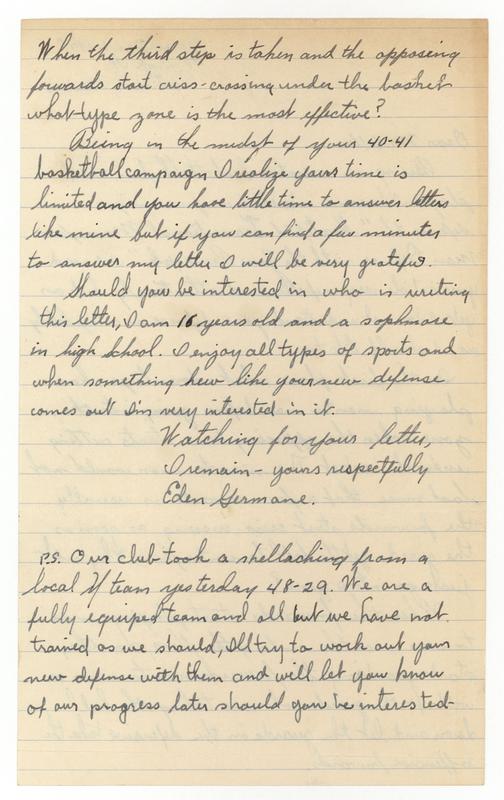 When the third step is taken and the opposing
forwards start criss-crossing under the basket
what type zone is the most effective?
Being in the midst of your 40-41
basketball campaign I realize yours time is
limited and you have little time to answer letters
like mine but if you can find a few minutes
to answer my letter I will be very grateful.
Should you be interested in who is writing
this letter, I am 16 years old and a sophmore
in high School. I enjoy all types of sports and
when something new like your new defense
comes out I'm very interested in it.
Watching for your letter,
I remain - yours respectfully
Eden Germane.
P.S. Our club took a shellacking from a
local Y team yesterday 48-29. We are a
fully equiped team and all but we have not
trained as we should, I'll try to work out your
new defense with them and will let you know
of our progress later should you be interested-